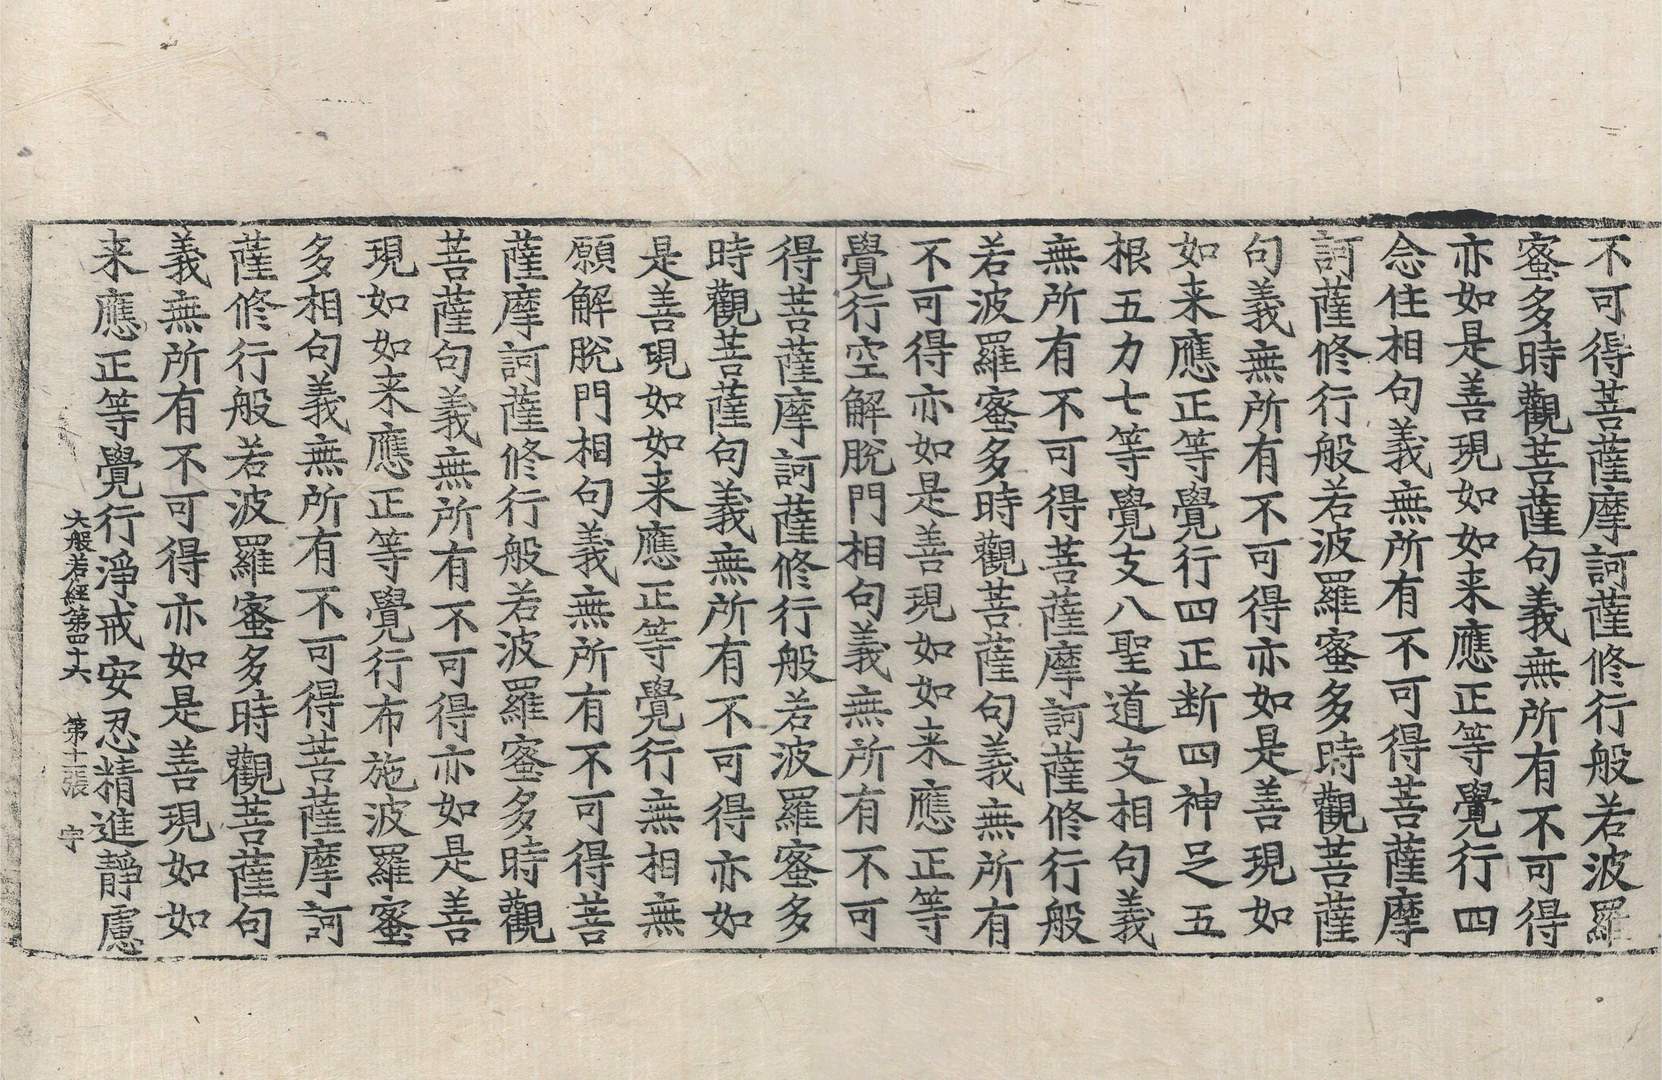 不可得菩薩摩訶薩修行般若波羅
蜜多時觀菩薩句義無所有不可得
亦如是善現如如来應正等覺行四
念住相句義無所有不可得菩薩摩
訶薩修行般若波羅蜜多時觀菩薩
句義無所有不可得亦如是善現如
如来應正等覺行四正断四神足五
根五力七等覺支八聖道支相句義
無所有不可得菩薩摩訶薩修行般
若波羅蜜多時觀菩薩句義無所有
不可得亦如是善現如如来應正等
覺行空解脫門相句義無所有不可
得菩薩摩訶薩修行般若波羅蜜多
時觀菩薩句義無所有不可得亦如
是善現如如来應正等覺行無相無
願解脫門相句義無所有不可得菩
薩摩訶薩修行般若波羅蜜多時觀
菩薩句義無所有不可得亦如是善
現如如来應正等覺行布施波羅蜜
多相句義無所有不可得菩薩摩訶
薩修行般若波羅蜜多時觀菩薩句
義無所有不可得亦如是善現如如
来應正等覺行淨戒安忍精進靜慮
大般若經第四十六 第十張 宇